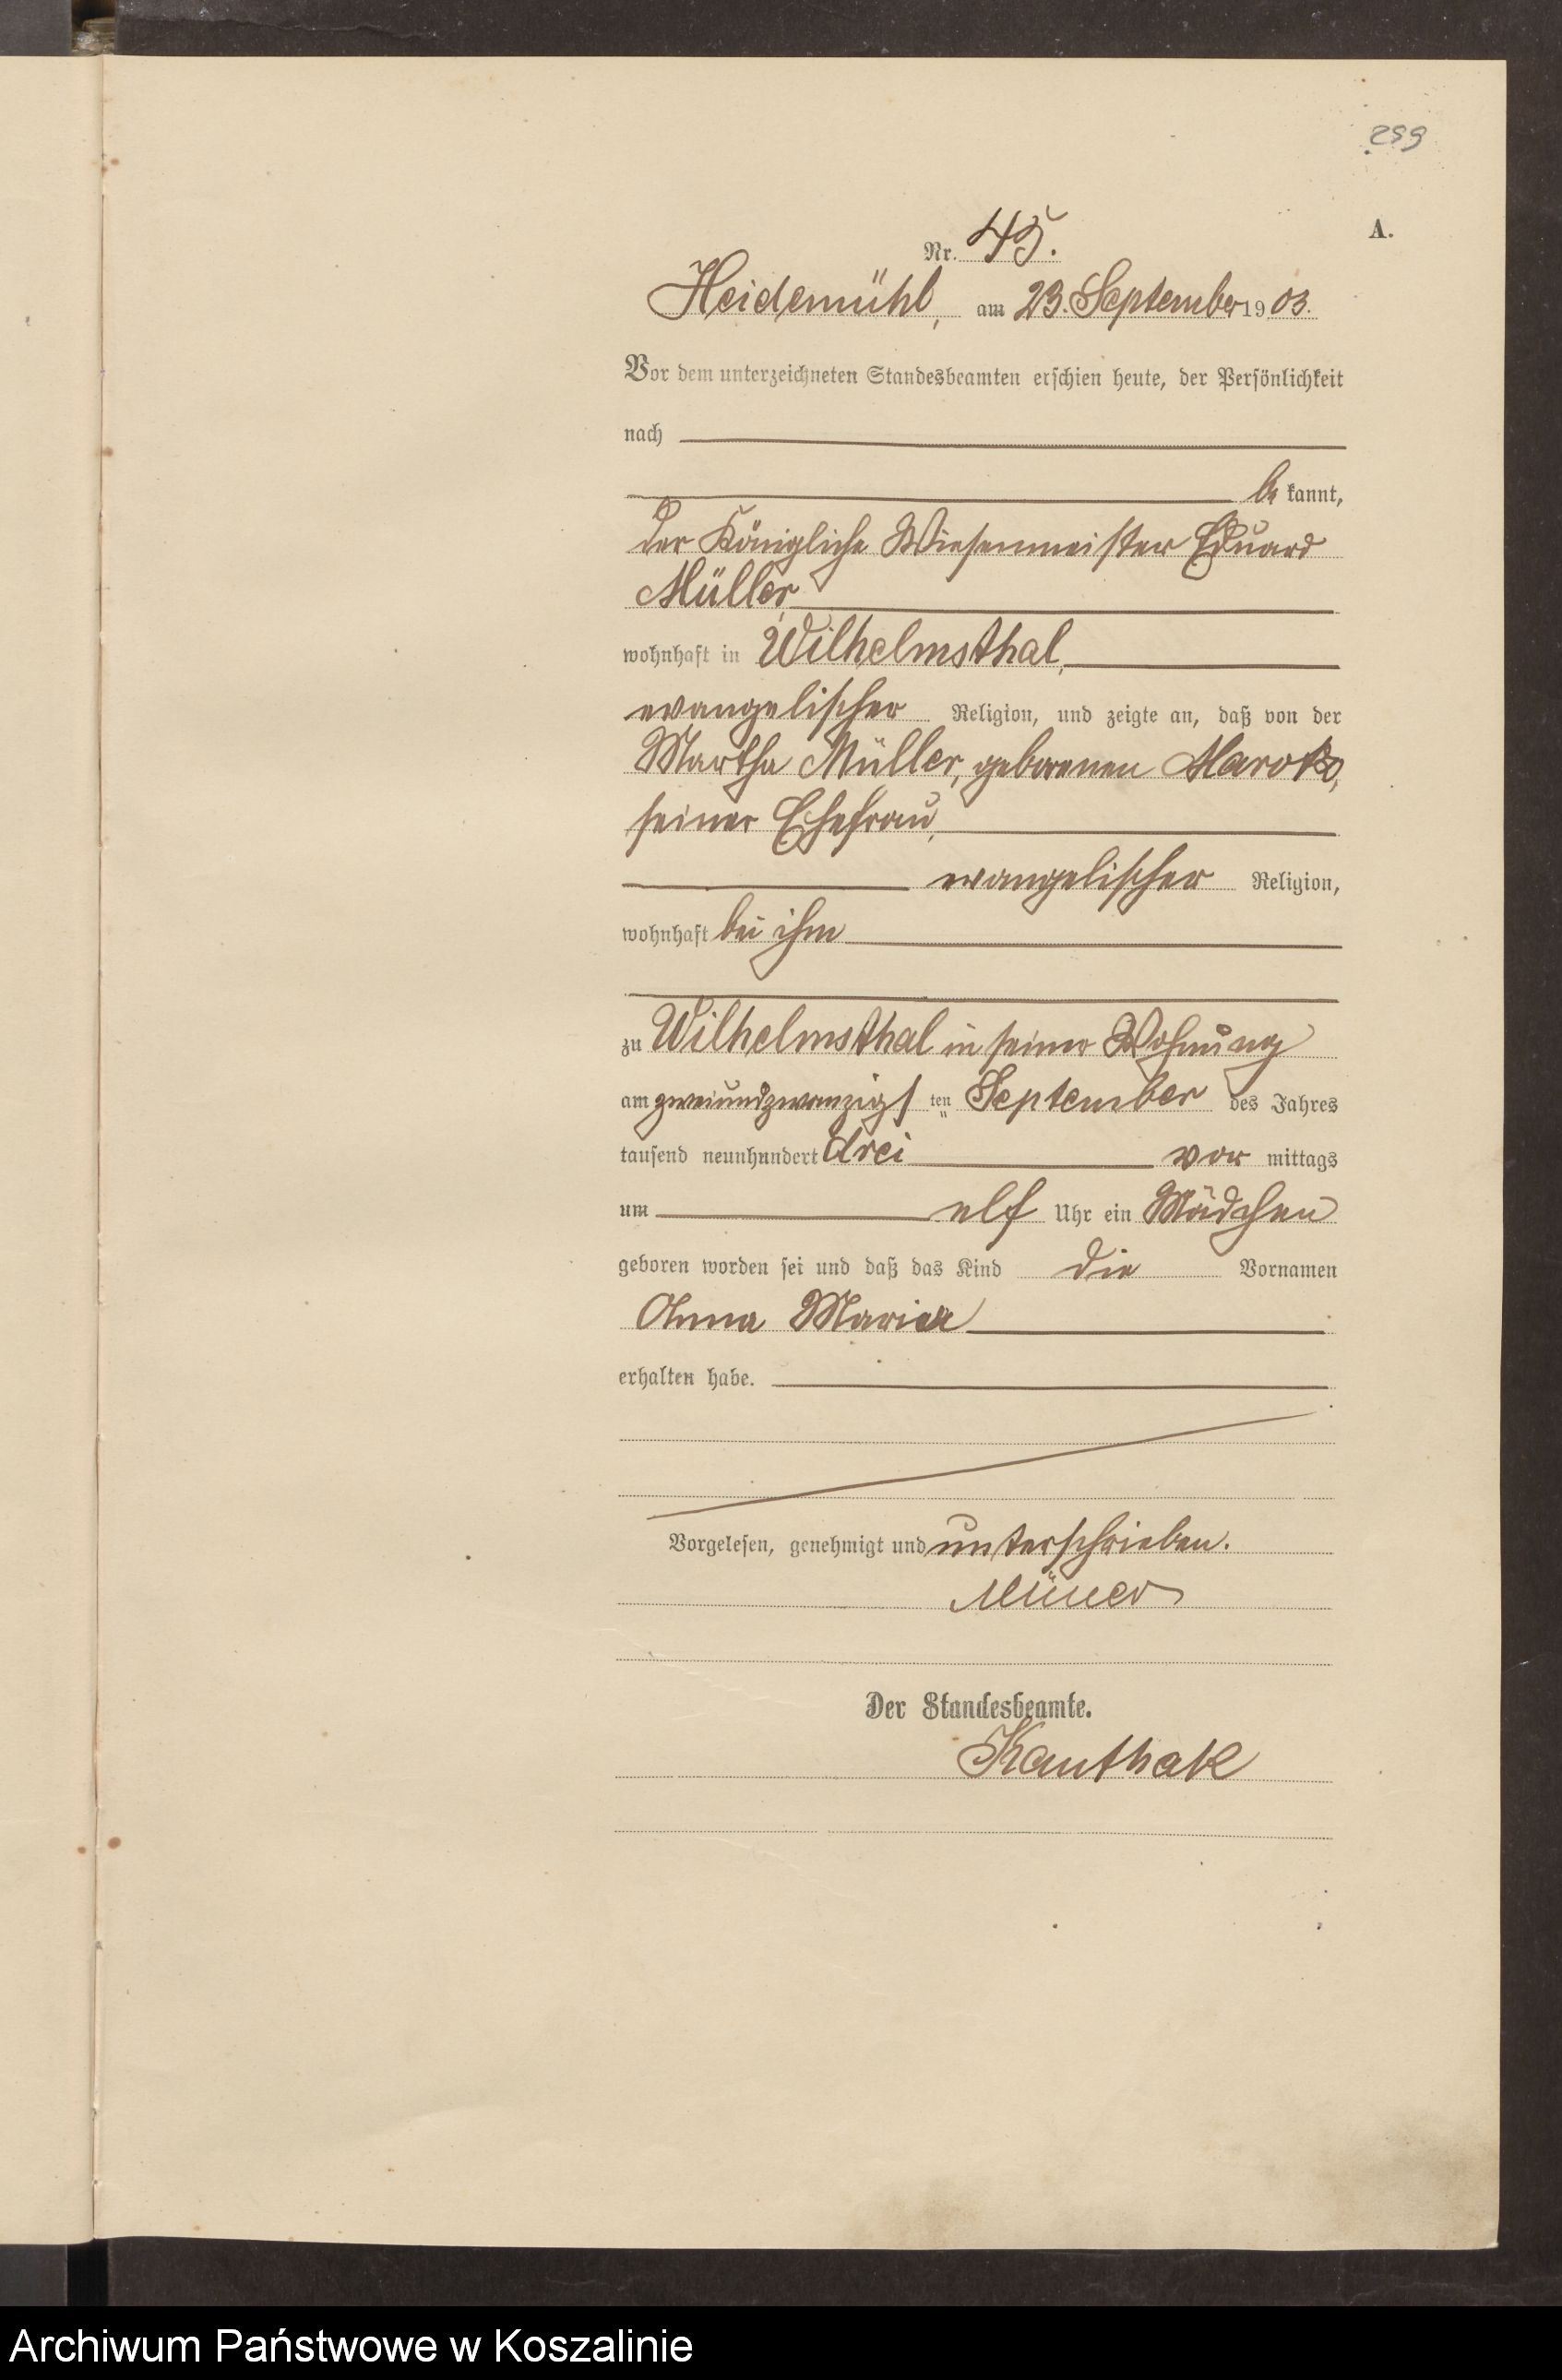 259
A.
Nr. 45.
Heidemühl, am 23. September 1903.
Vor dem unterzeichneten Standesbeamten erschien heute, der Persönlichkeit
nach
be kannt,
der Königliche Wiesenmeister Eduard
Müller,
wohnhaft in Wilhelmsthal,
evangelischer Religion, und zeigte an, daß von der
Martha Müller, geborenen
seiner Ehefrau,
evangelischer Religion,
wohnhaft bei ihm
zu Wilhelmsthal in seiner Wohnung
am zweiundzwanzigsten September des Jahres
tausend neunhundert drei vor mittags
um elf Uhr ein Mädchen
geboren worden sei und daß das Kind die Vornamen
Anna Maria
erhalten habe.
Vorgelesen, genehmigt und unterschrieben.
Müller
Der Standesbeamte.
Kauthak
Archiwum Państwowe w Koszalinie